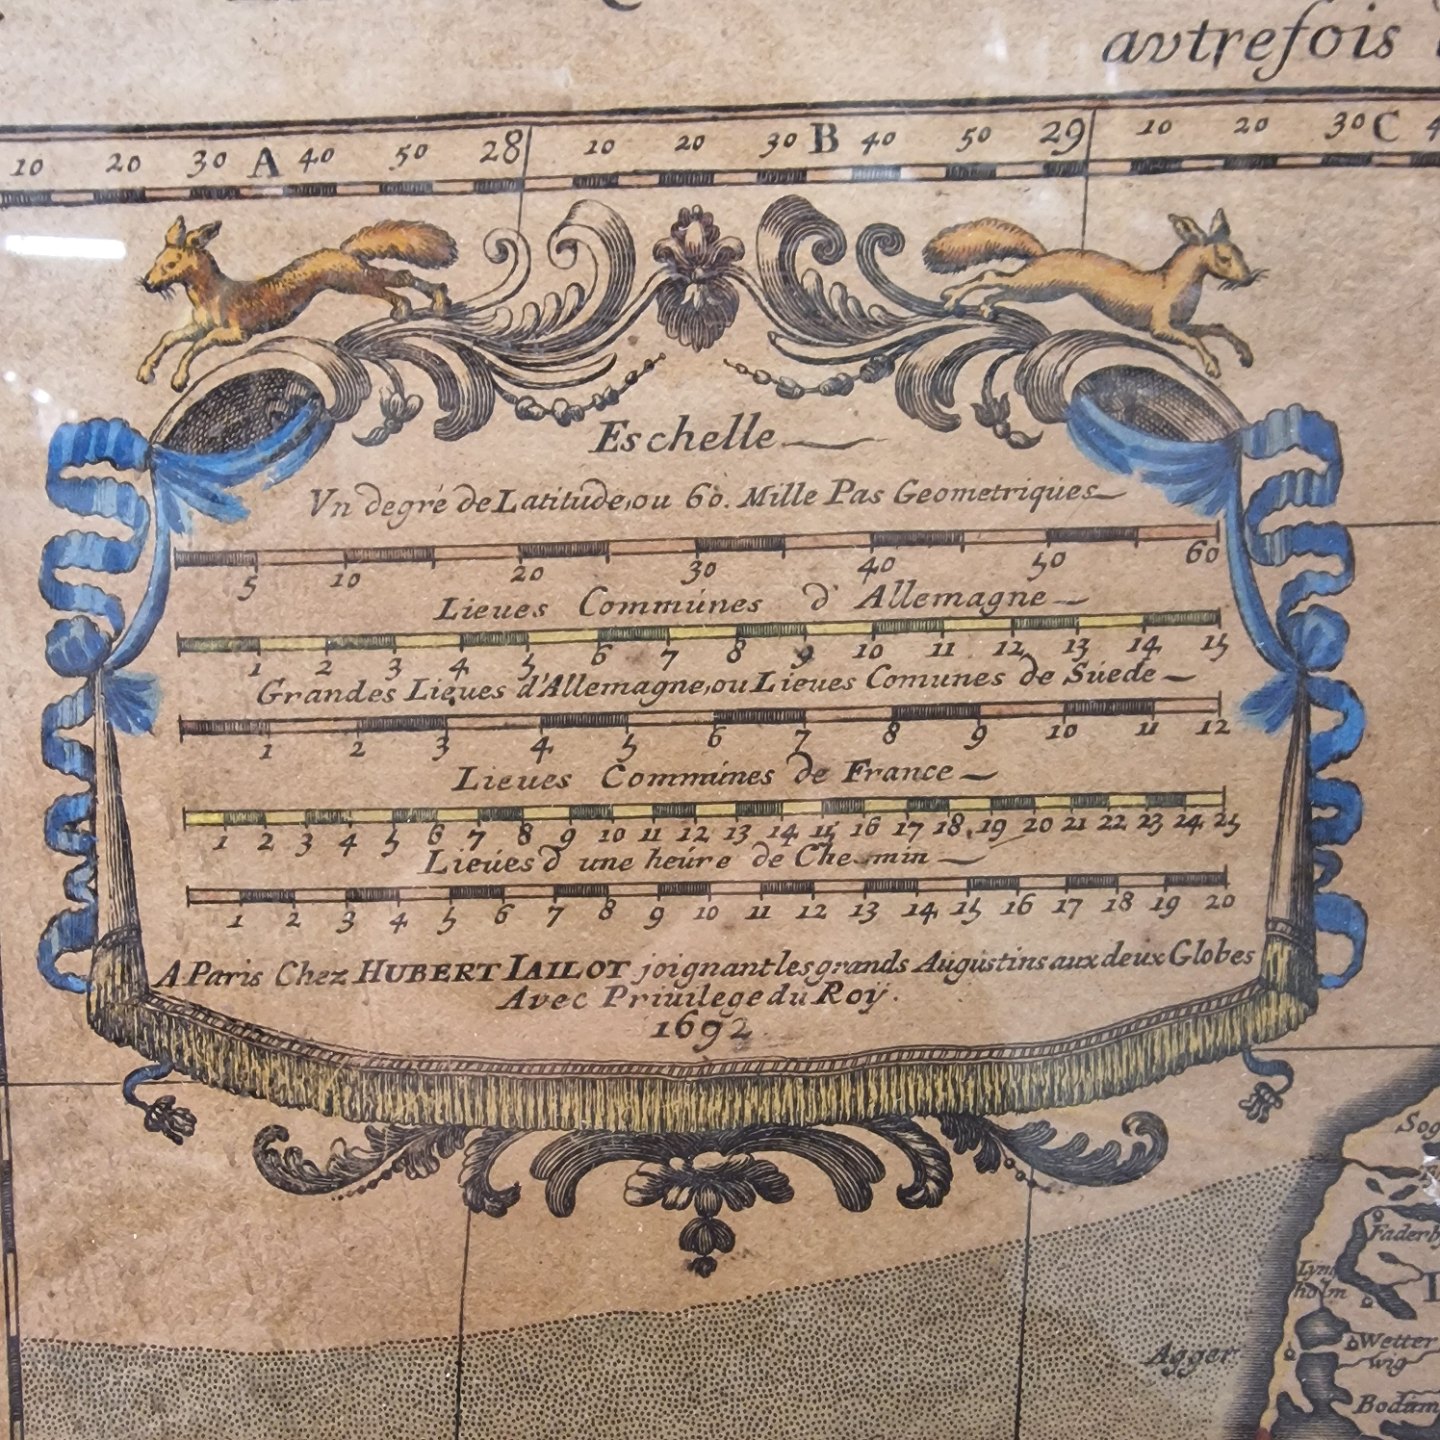 avtrefois
10 20 30 A 40 50 28 10 20 30 B 40 50 29 10 20 30 C
Eschelle
Vn degré de Latitude, ou 60. Mille Pas Geometriqúes
5 10 20 30 40 50 60
Lieues Commúnes d'Allemagne
1 2 3 4 5 6 7 8 9 10 11 12 13 14 15
Grandes Lieues d'Allemagne, ou Lieues Comunes de Súede
1 2 3 4 5 6 7 8 9 10 11 12
Lieues Commúnes de France
1 2 3 4 5 6 7 8 9 10 11 12 13 14 15 16 17 18 19 20 21 22 23 24 25
Lieúes d une heúre de Chemin
1 2 3 4 5 6 7 8 9 10 11 12 13 14 15 16 17 18 19 20
A Paris Chez HUBERT IAILOT joignant les grands Augustins aux deux Globes
Avec Priuilege du Roÿ.
1692
Sog
Faderb
Lym
holm
Wetter
wig
Agger
Bodum